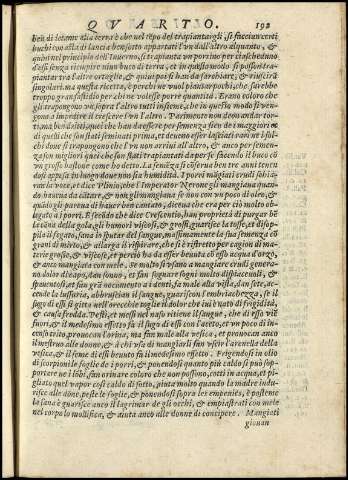 QVARITIO. 192
ben di letame alla terra e che nel tēpo del trapiantargli, si facciano certi
buchi con asta di lancia ben forte appartati l'vn dall'altro alquanto, &
quiui nel principio dell'Inuerno, si trapianta vn porrino per ciascheduno
d'essi senza riempire nien buco di terra, et in questo modo si posson tra-
piantar tra l'altre ortaglie, & quiui poi si han da sarchiare, & riuscirā
singolari. ma questa ricetta, è per chi ne vuol piantar pochi, che sarebbe
troppo gran fastidio per chi ne volesse porre quantità. Erano coloro che
gli trapongono vn sopra l'altro tutti insieme, che in questo modo si ven-
gono a impedire il crescere l'vn l'altro. Parimente non deon andar tor-
ti, ma ben dritti, quei che han da essere per semenza
di quelli che son stati seminati prima, et deueno esser lasciati
chi doue si trapongono che l'vn non arriui all'altro, & anco per semen-
za son migliori quei che son stati trapiantati da per se faccino il buco cō
vn grosso bastone come ho detto. La semēza si cōserua ben tre anni tenuta
doue non sia humidità. I porri māgiati crudi schia-
ran la voce, et dice Plinio, che l'Imperator Nerone gli mangiaua quan-
do haueua da cātare, & non gli mangiaua se non con vn poco di oleo, &
quādo gli pareua di hauer ben cantato, diceua che era per ciò molto ob-
ligato a i porri. E secōdo che dice Crescentio, han proprietà di purgar bē
la cāna della gola, gli humori viscosi, & grossi, guarisce la tosse, et disop-
pila il fegato, fanno lo sputar del sangue, massimamente la sua semenza cō
grani di mirto, & allarga il respirare, che si è ristretto per cagion di ma-
terie grosse, & viscose, et perciò ha da esser beuuta cō esso acqua d'orzo,
& anco mangiata con mele. Se molto s'vsano a mangiare crudi genera-
no dolor di capo, dan sonno, et fan sognare sogni molto dispiaceuoli, &
spauentosi, et fan grā nocumento a i denti, fa male alla vista, dan sete, ac-
cende la lussuria, abbruscian il sangue, guariscon l'embriachezza, se il
sugo di essi si gitta nell'orecchie toglie il dolor che iui è nato di frigidità,
& causa fredda. Pesti, et messi nel naso vitiene il sangue, che di esso viē
fuori, & il medesimo effetto fa il sugo di essi con l'aceto, et vn poco di in-
censo trito, prouocan l'orina, ma fan male alla vesica, et prouocan anco
il mestruo alle donne, & à chi vsa di mangiarli fan vscir l'arenella della
vesica, & il seme di essi beuuto fa il medesimo effetto. Frigendosi in olio
di scorpioni le foglie de i porri, & ponendosi quanto piu caldo si può sop-
portare ne i lobi, fan orinare coloro che non possono, cotti in acqua, et pi-
gliato quel vapor così caldo di sotto, aiuta molto quando la madre indu-
risce alle done, peste le foglie, & ponendosi sopra le è posteme,
la sana & guarisce anco il lagrimar de gli occhi, & empiastrati con mele
nel corpo lo mollifica, & aiuta anco alle donne di concipere. Mangiati
gionan